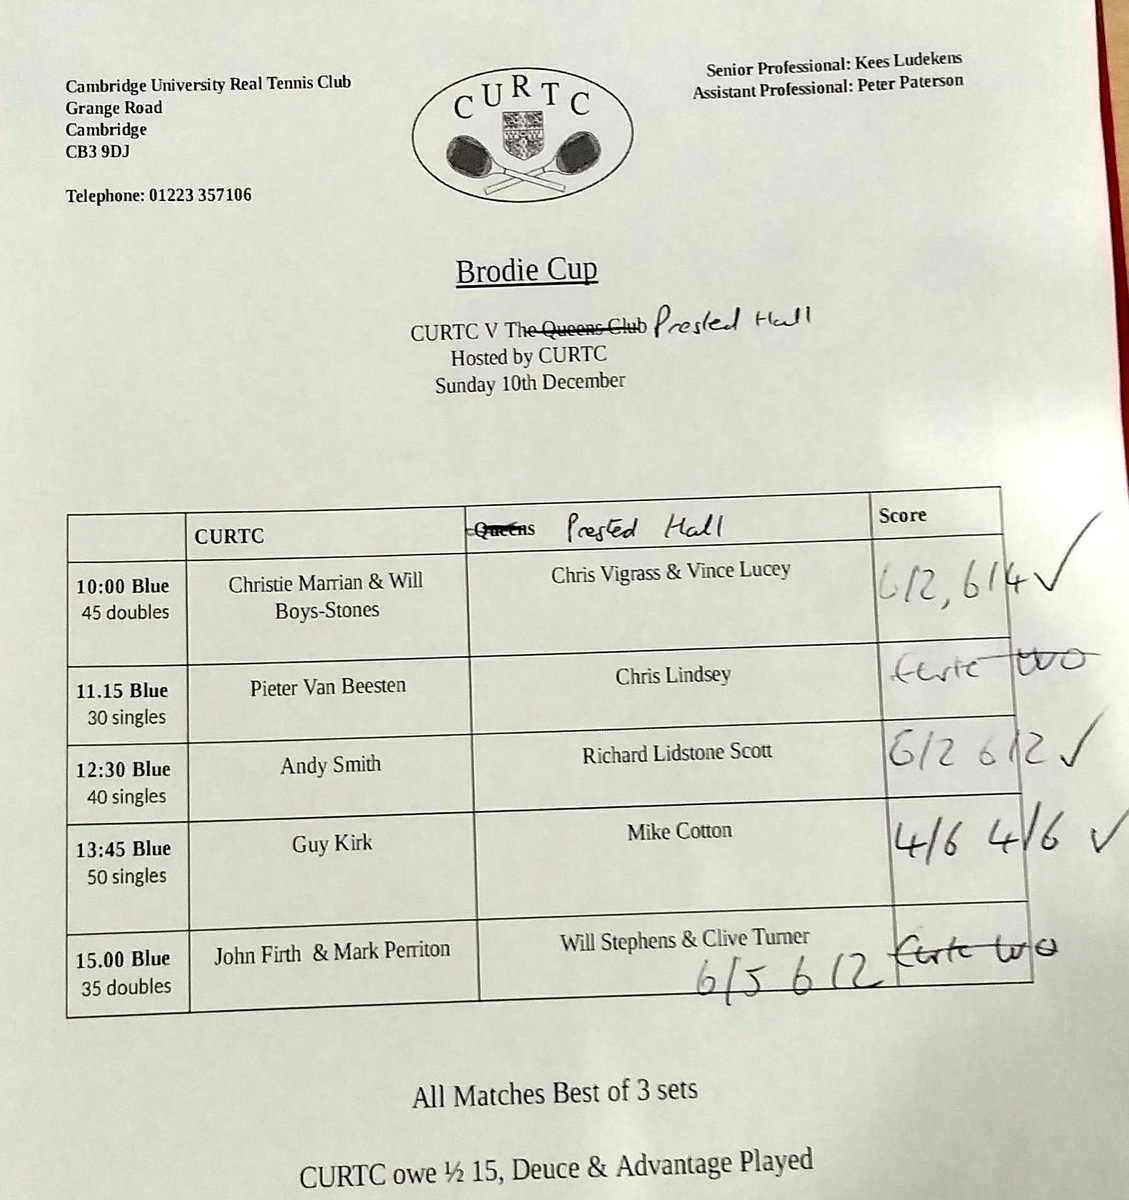 Cambridge University Real Tennis Club
Grange Road
Cambridge
CB3 9DJ
Telephone: 01223 357106
CURTC
Senior Professional: Kees Ludekens
Assistant Professional: Peter Paterson
Brodie Cup
CURTC V The Queens Club Prested Hall
Hosted by CURTC
Sunday 10th December
CURTC Queens Prested Hall Score
10:00 Blue
45 doubles
Christie Marrian & Will
Boys-Stones
Chris Vigrass & Vince Lucey
6/2, 6/4 ✓
11.15 Blue
30 singles
Pieter Van Beesten
Chris Lindsey
12:30 Blue
40 singles
Andy Smith
Richard Lidstone Scott
6/2 6/2 ✓
13:45 Blue
50 singles
Guy Kirk
Mike Cotton
4/6 4/6 ✓
15.00 Blue
35 doubles
John Firth & Mark Perriton
Will Stephens & Clive Turner
6/5 6/2
All Matches Best of 3 sets
CURTC owe ½ 15, Deuce & Advantage Played